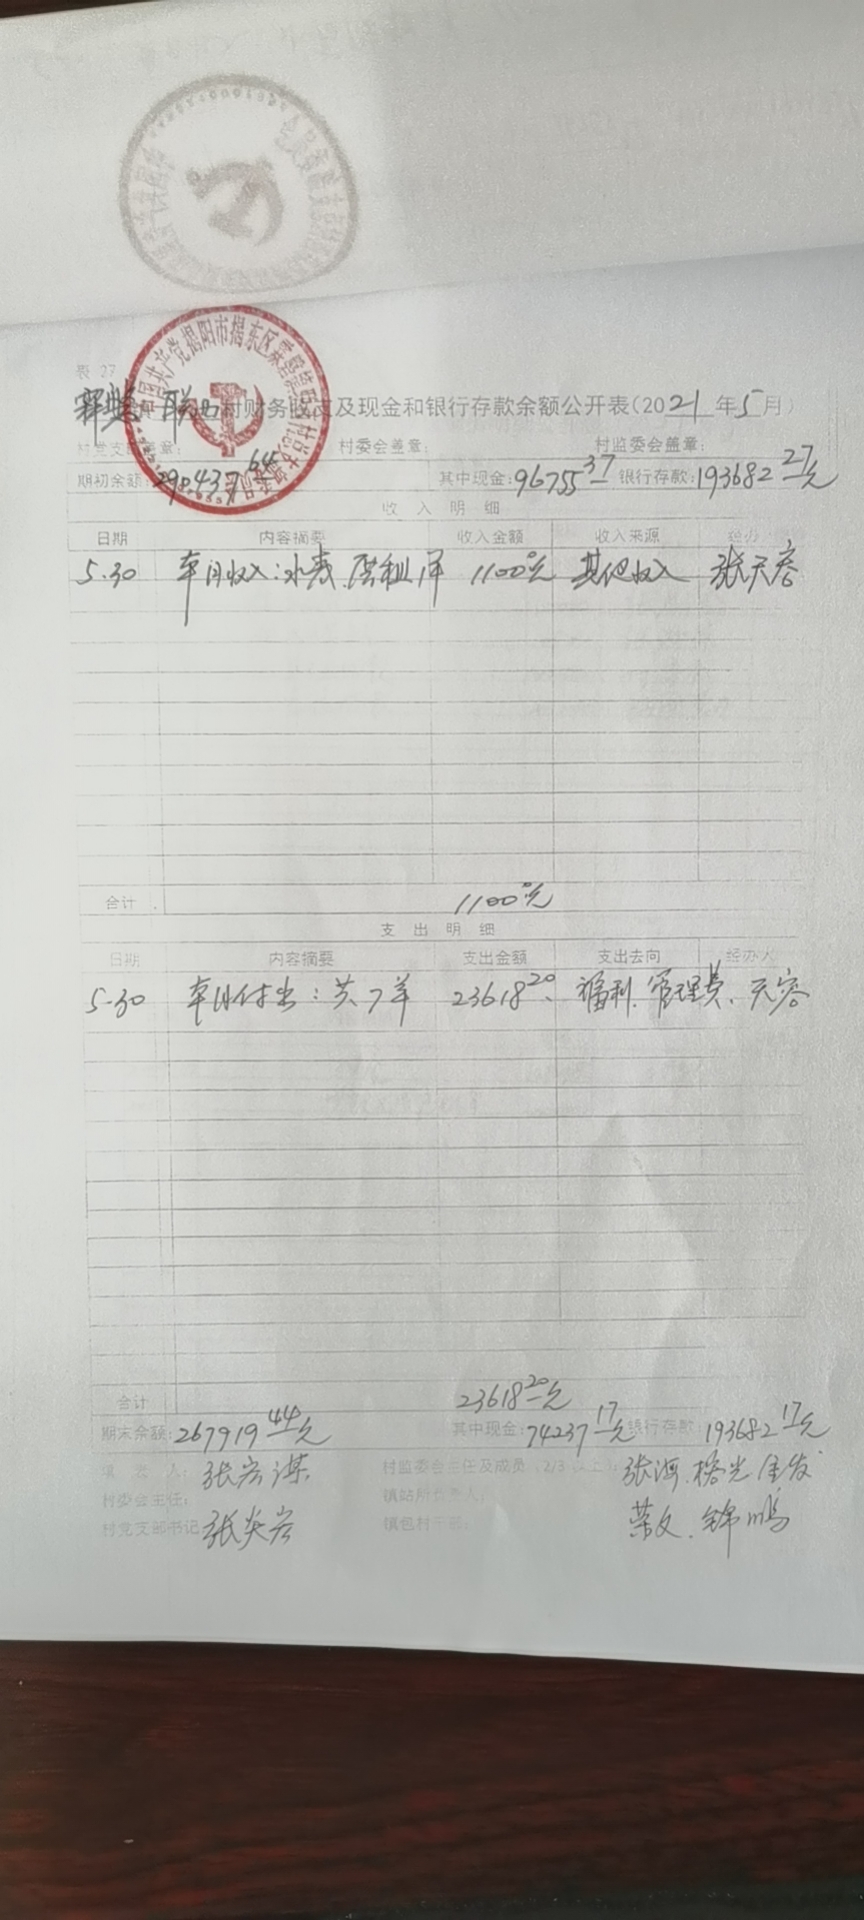 表 27
联 村财务收支及现金和银行存款余额公开表(2021年5月)
村党支部盖章: 村委会盖章: 村监委会盖章:
期初余额:290437.64 其中现金:96755.37 银行存款:193682.27元
收入明细
日期 内容摘要 收入金额 收入来源 经办
5.30 本月收入:水表、厝租,1单 1100.00元 其他收入 张天容
合计 1100.00元
支出明细
日期 内容摘要 支出金额 支出去向 经办人
5.30 本月付出:共7单 23618.20 福利、管理费、天容
合计 23618.20元
期末余额:267919.44元 其中现金:74237.17元 银行存款:193682.17元
填表人: 张 村监委会主任及成员(2/3以上): 张海、
村委会主任: 镇站所负责人:
村党支部书记 张炎 镇包村干部: 荣文、锦鹏